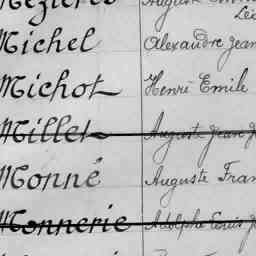 Mezières Auguste
Léo
Michel Alexandre Jean
Michot Henri Emile
Millet Auguste Jean
Monné Auguste Fran
Monnerie Adolphe Louis